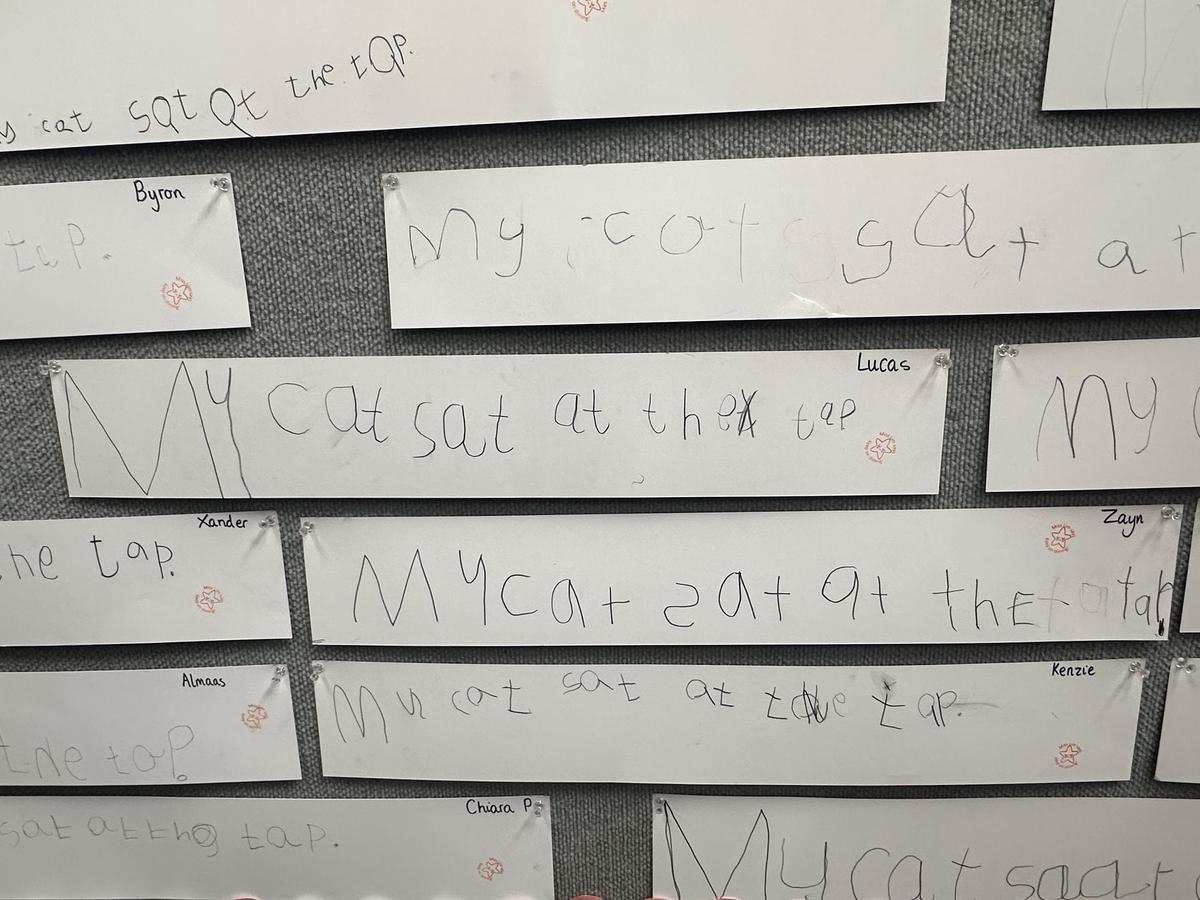 cat sat at the tap.
Byron
tap.
My cat sat at
Lucas
My cat sat at the tap
My
Xander
he tap.
Zayn
My cat sat at thE tap
Almaas
tne tap.
Kenzie
My cat sat at the tap.
Chiara P
sat at the tap.
My cat saat